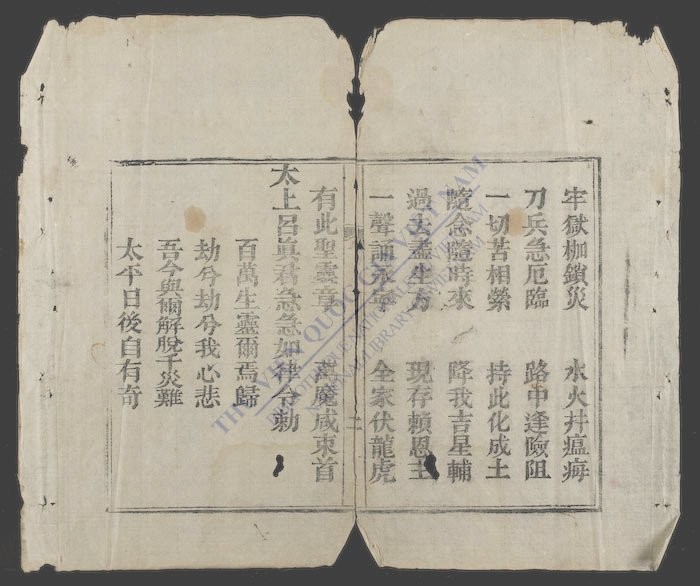 牢獄枷鎖災 水火并瘟痗
刀兵急厄臨 路中逢險阻
一切苦相縈 持此化成土
隨念隨時來 降我吉星輔
過去盡生方 現存賴恩主
一聲誦永寧 全家伏龍虎
二
有此聖章 萬魔咸束首
太上呂眞君急急如律令勅
百萬生靈爾焉歸
劫兮劫兮我心悲
吾今與爾解脫千災難
太平日後自有奇
THƯ VIỆN QUỐC GIA VIỆT NAM
BIBLIOTHÈQUE NATIONALE DU VIETNAM
NATIONAL LIBRARY OF VIETNAM